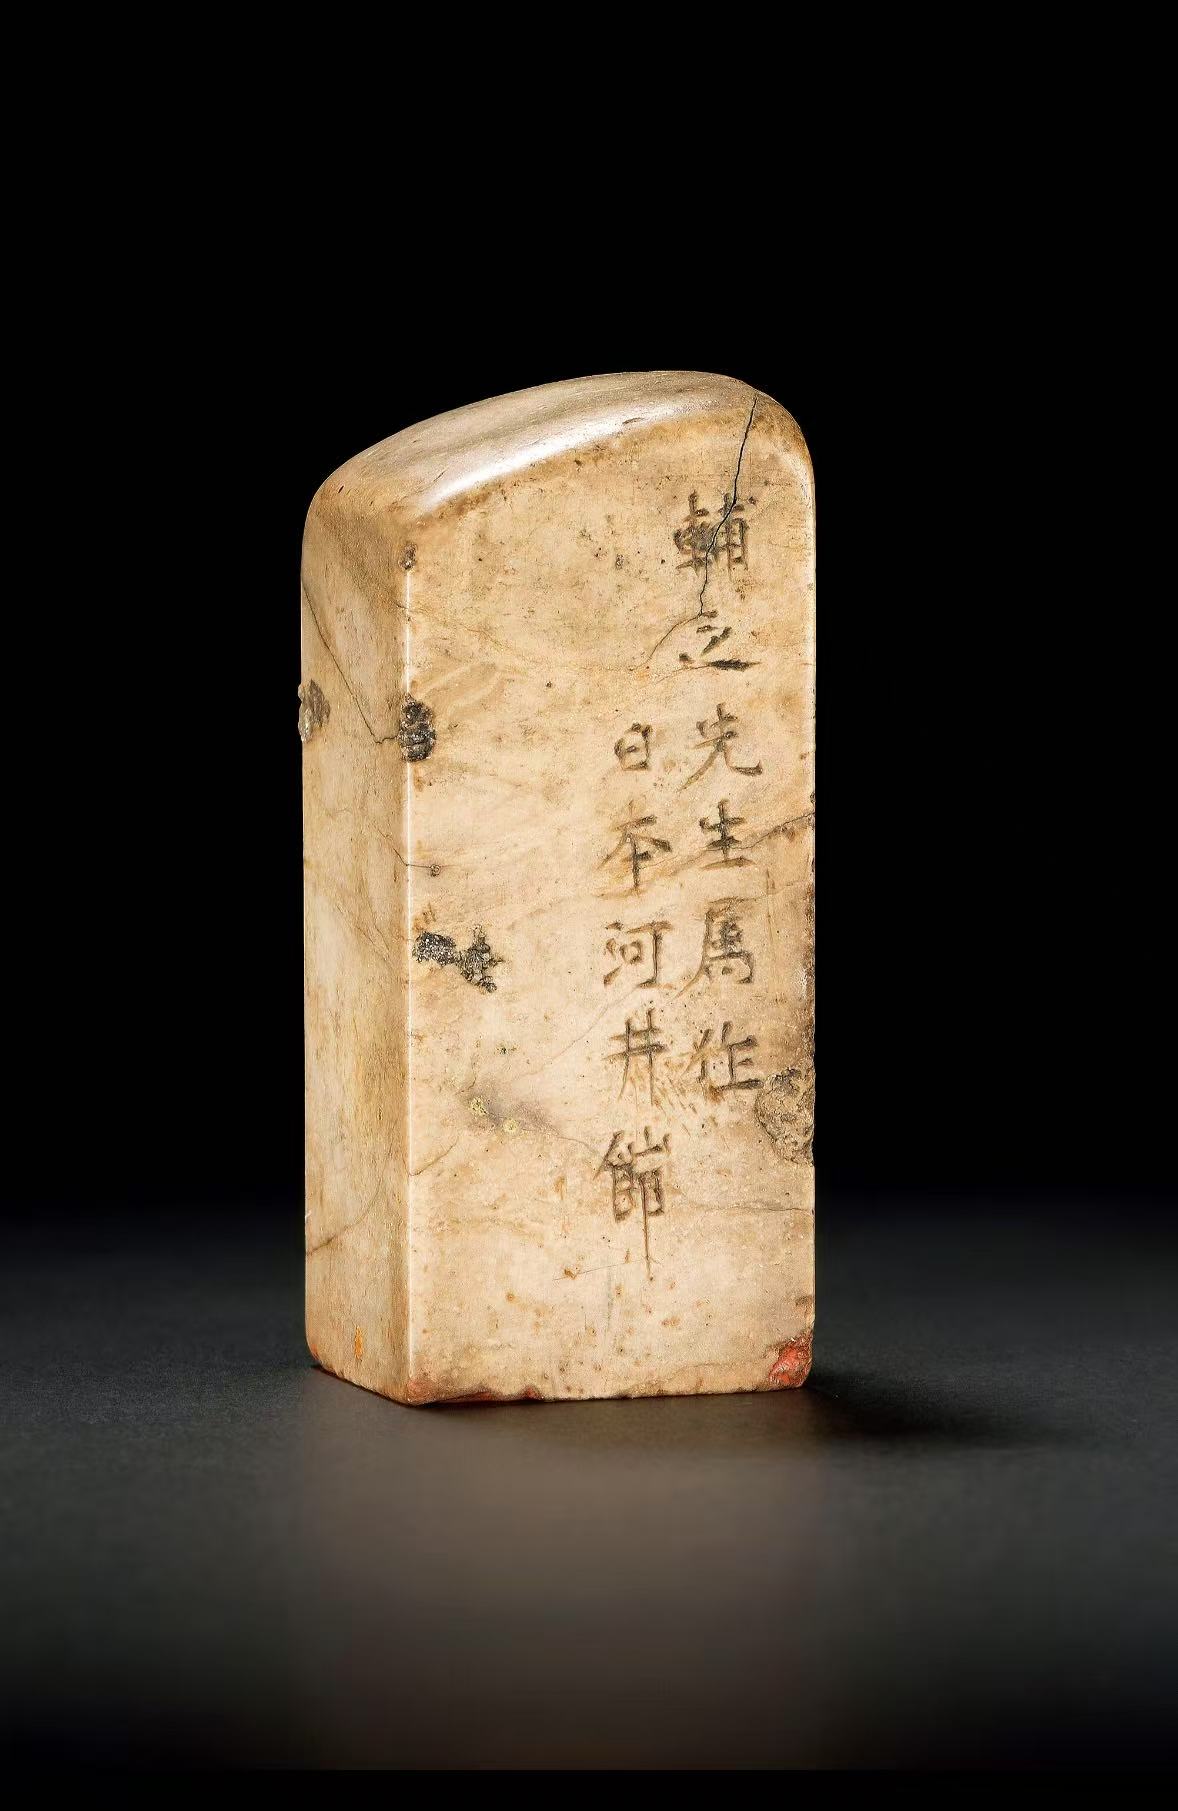 輔之先生属作
日本河井仙郎